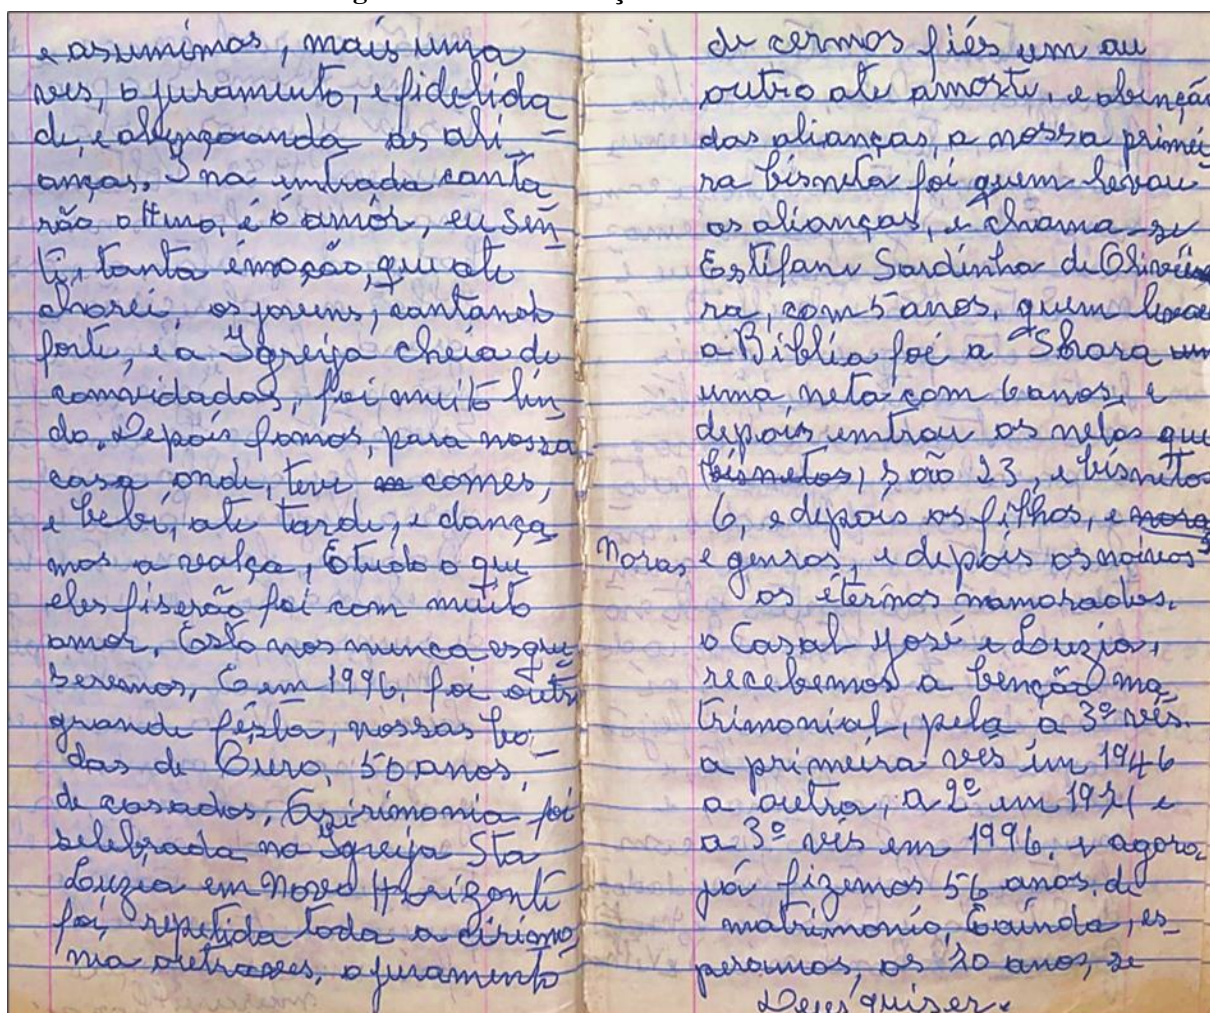 e asumimos, mais uma
ves, o juramento, e fidelida
de, e abençoando as ali
anças. I na entrada canta
rão o Hino, é ó amôr, eu sen
ti, tanta emoção, que ate
chorei, os jovens, cantando
forte, e a Igreija cheia de
comvidados, foi muito lin
do. Depois fomos, para nossa
casa onde, teve comes,
e bebi, ate tarde, e dança
mos a valça, E tudo o que
eles fiserão foi com muito
amor. Esto nos nunca esque
seremos, E em 1996, foi outra
grande festa, nossas bo
das de Ouro, 50 anos,
de casados, A sirimonia foi
selebrada na Igreija Sta
Luzia em Novo Horizonte
foi, repetida toda a cirimo
nia outra ves, o juramento
de cermos fiés um au
outro ate amorte, e abenção
das alianças, a nossa primei
ra bisneta foi quem levou
as alianças, e chama-se
Estifani Sardinha de Olivei
ra, com 5 anos, quem levou
a Biblia foi a Shara
uma neta com 6 anos, e
depois emtrou os netos que
bisnetos, são 23, e bisnetos
6, e depois os filhos, e noras
Noras, e genros, e depois os noivos
os eternos namorados,
o Casal José e Luzia,
recebemos a benção ma
trimonial, pela a 3º vês.
a primeira ves im 1946
a outra, a 2º em 1971 e
a 3º vês em 1996, e agora
já fizemos 56 anos, de
matrimonio, E ainda, es
peramos, os 70 anos, se
Deus quiser.